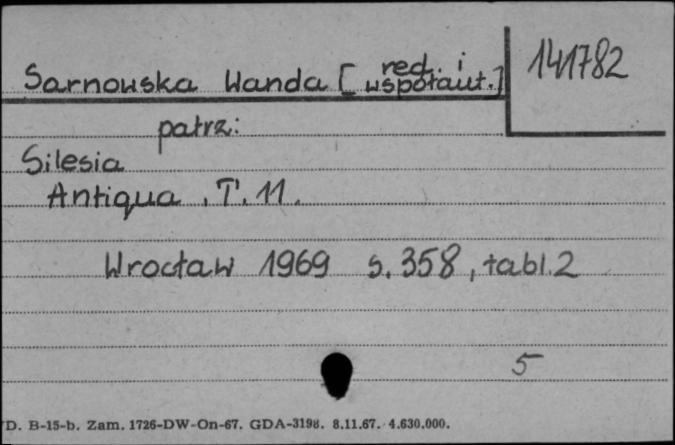 Sarnowska Wanda [red. i współaut.]
141782
patrz:
Silesia
Antiqua . T. 11.
Wrocław 1969 s. 358, tabl. 2
5
D. B-15-b. Zam. 1726-DW-On-67. GDA-3198. 8.11.67. 4.630.000.